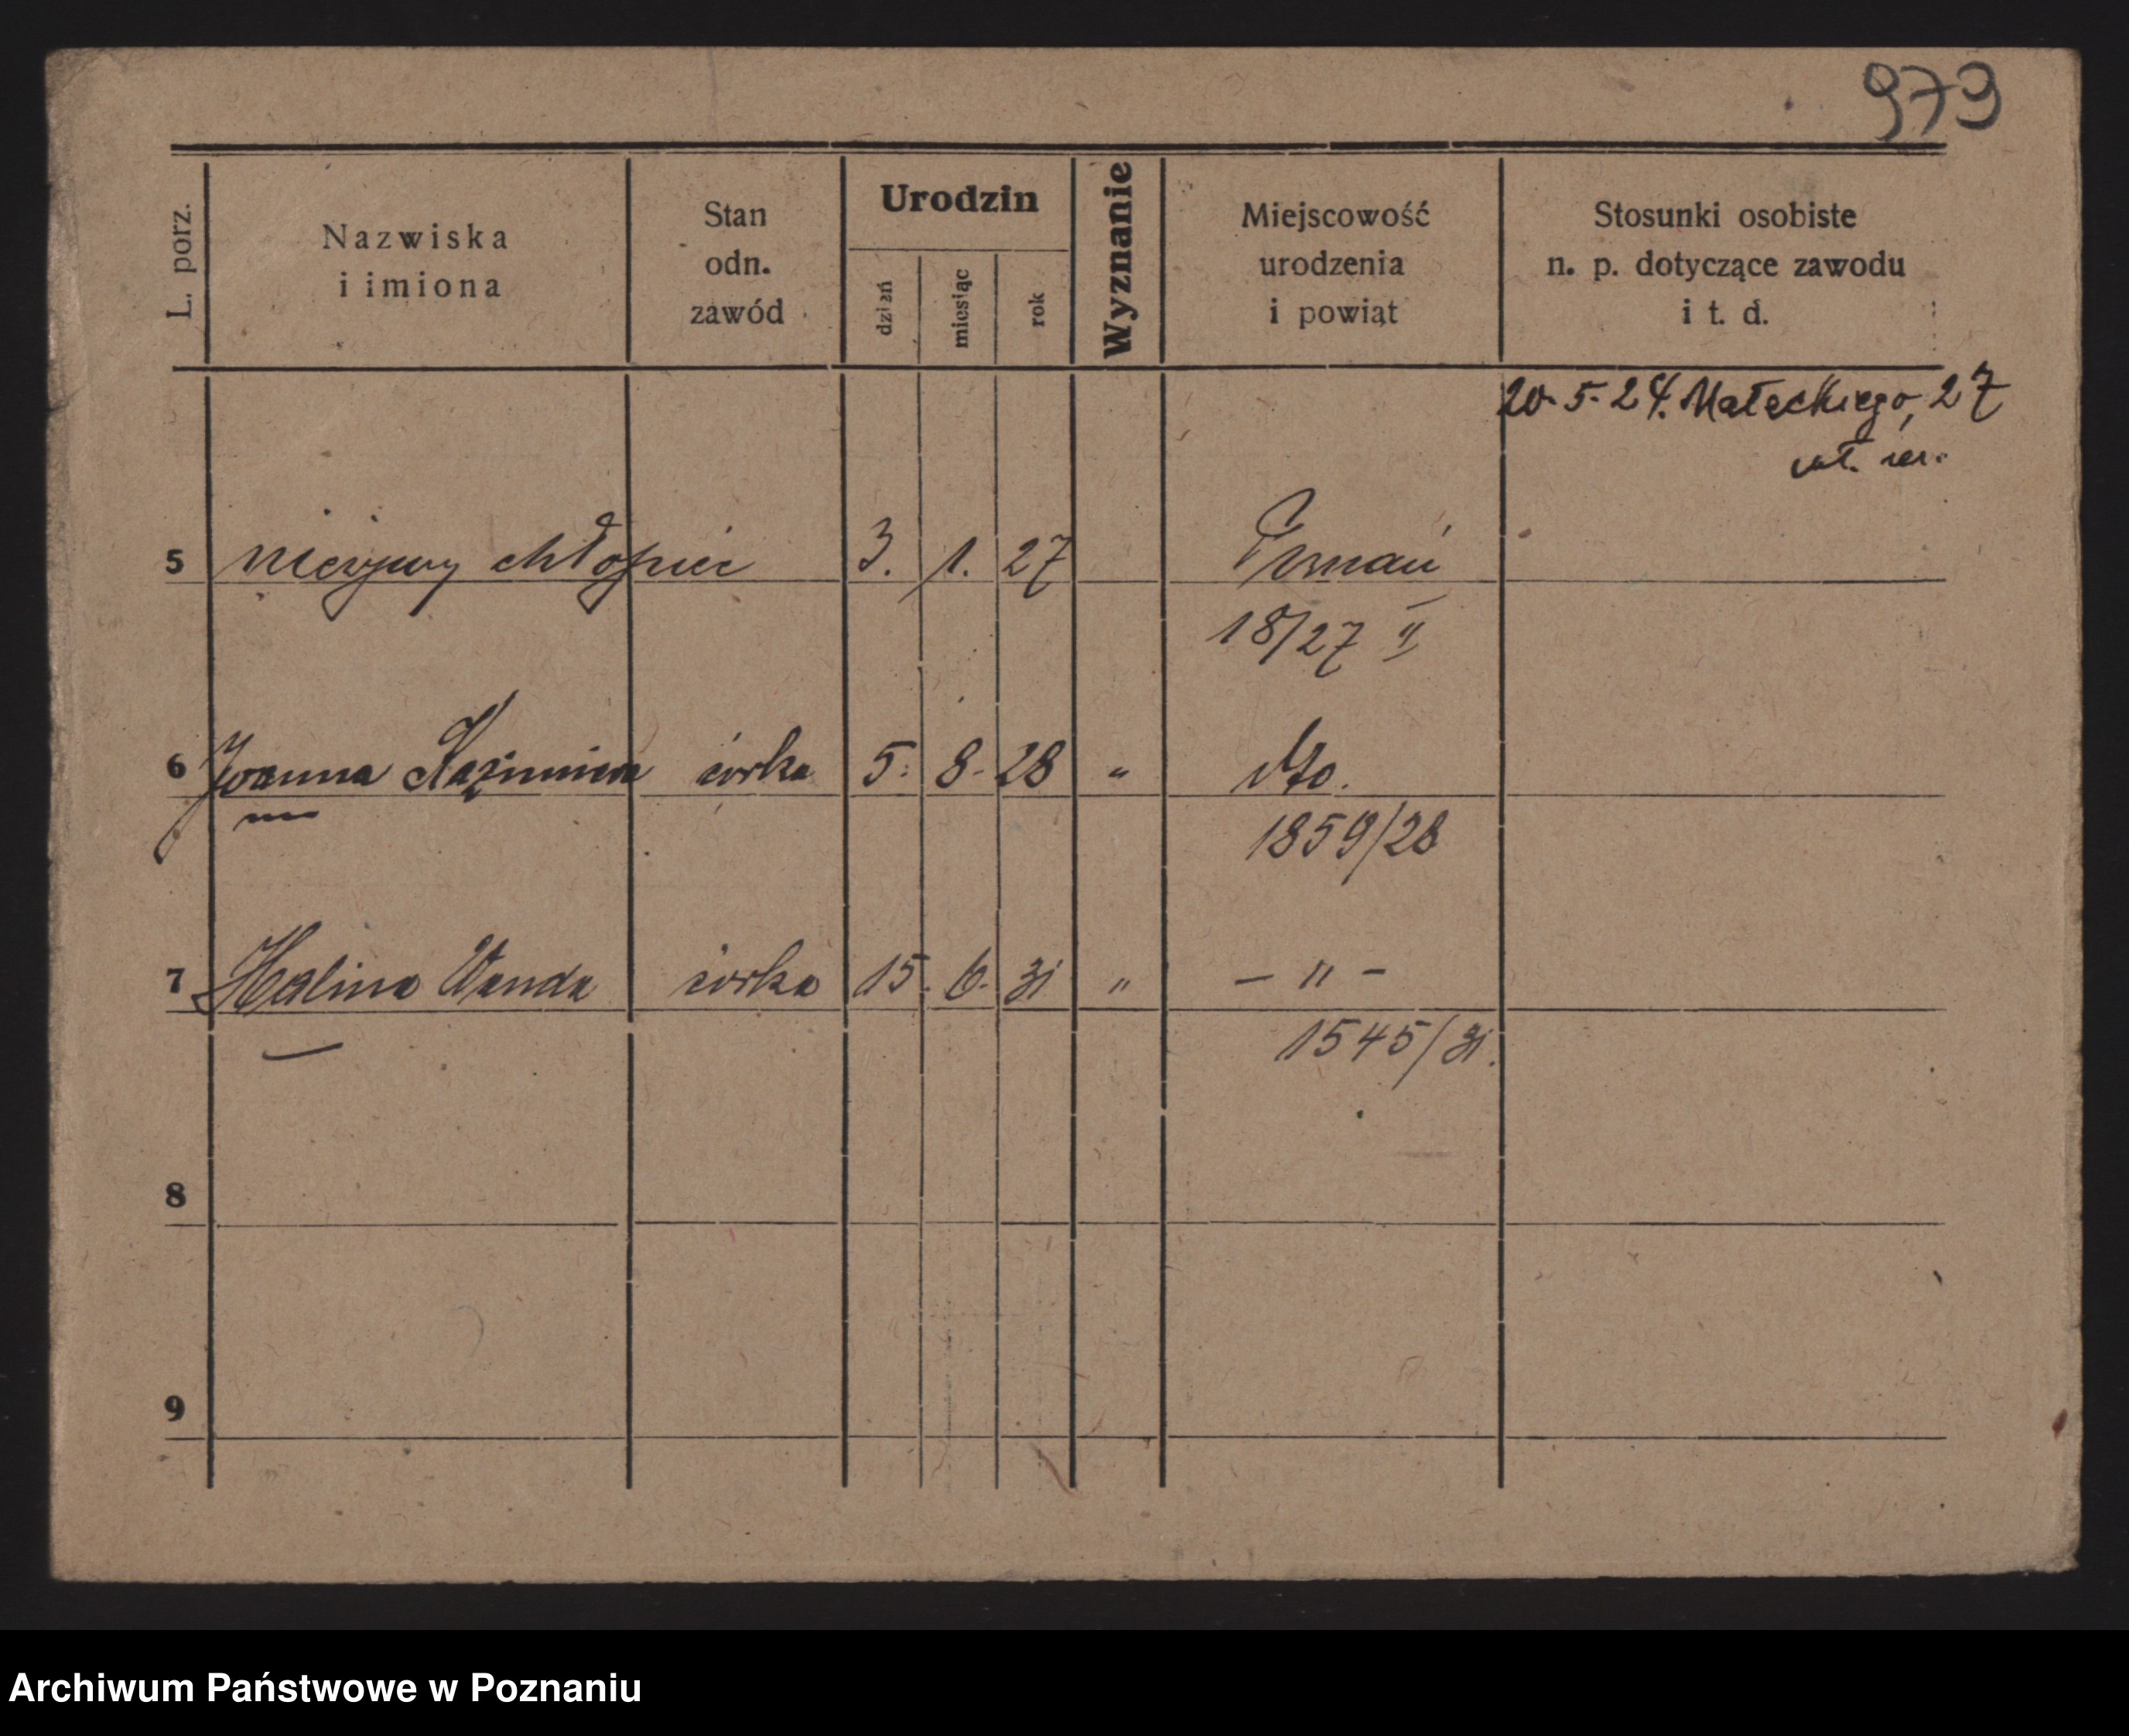 979
L. porz.
Nazwiska
i imiona
Stan
odn.
zawód
Urodzin
dzień
miesiąc
rok
Wyznanie
Miejscowość
urodzenia
i powiąt
Stosunki osobiste
n. p. dotyczące zawodu
i t. d.
20.5.24. Małeckiego, 27
5 nieżywy chłopiec 3. 1. 27 Poznań
18/27 II
6 Joanna Kazimiera córka 5. 8. 28 " dto.
1859/28
7 Halina Wanda córka 15. 6. 31 " - " -
1545/31.
8
9
Archiwum Państwowe w Poznaniu